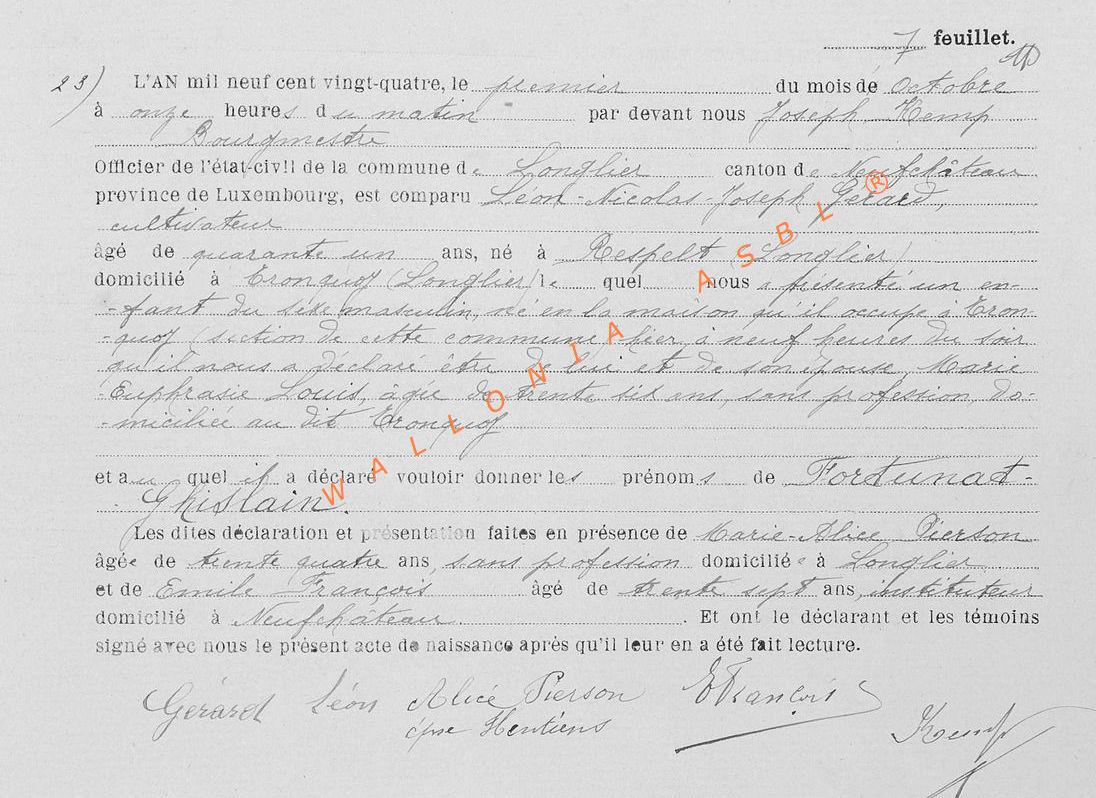 7 feuillet.
23) L'AN mil neuf cent vingt-quatre, le premier du mois de Octobre
à onze heures du matin par devant nous Joseph Kemp
Bourgmestre
Officier de l'état-civil de la commune de Longlier canton de Neufchâteau
province de Luxembourg, est comparu Léon-Nicolas-Joseph Gérard,
cultivateur
âgé de quarante un ans, né à Respelt (Longlier)
domicilié à Tronquoy (Longlier) lequel nous a présenté un en-
-fant du sexe masculin, né en la maison qu'il occupe à Tron-
-quoy (section de cette commune) hier, à neuf heures du soir
qu'il nous a déclaré être de lui et de son épouse, Marie
Euphrasie Louis, âgée de trente six ans, sans profession do-
-miciliée au dit Tronquoy
et au quel il a déclaré vouloir donner les prénoms de Fortunat-
Ghislain.
Les dites déclaration et présentation faites en présence de Marie-Alice Pierson
âgée de trente quatre ans, sans profession domiciliée à Longlier
et de Emile François âgé de trente sept ans, instituteur
domicilié à Neufchâteau. Et ont le déclarant et les témoins
signé avec nous le présent acte de naissance après qu'il leur en a été fait lecture.
Gérard Léon Alice Pierson EFrançois
épse Hentiens
Kemp
WALLONIA ASBL ®